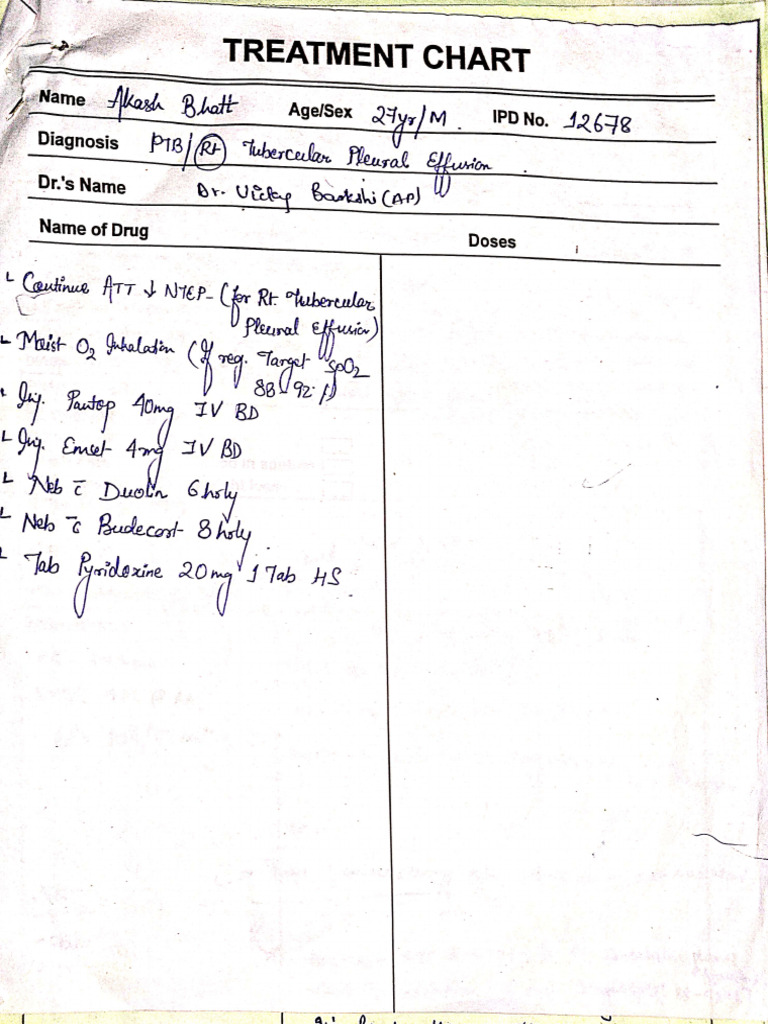 TREATMENT CHART
Name Akash Bhatt Age/Sex 27yr/M. IPD No. 12678
Diagnosis PTB/(Rt) Tubercular Pleural Effusion.
Dr.'s Name Dr. Vicky (AP)
Name of Drug Doses
Continue ATT ↓ NTEP - (for Rt. Tubercular
Pleural Effusion)
Moist O2 Inhalation (If req. Target SpO2
88-92%)
Inj. Pantop 40mg IV BD
Inj. Emset 4mg IV BD
Neb c̄ Duolin 6 hrly
Neb c̄ Budecort 8 hrly
Tab Pyridoxine 20mg 1 Tab HS.